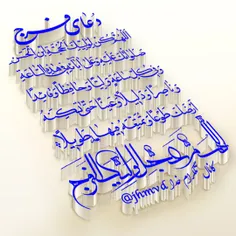 دعای فرج
اللهم کن لولیک الحجة بن الحسن
صلواتک علیه و علی آبائه فی هذه الساعة
و فی کل ساعة ولیا و حافظا و قائدا
و ناصرا و دلیلا و عینا حتی تسکنه
أرضک طوعا و تمتعه فیها طویلا
اللهم عجل لولیک الفرج
@jhmvd